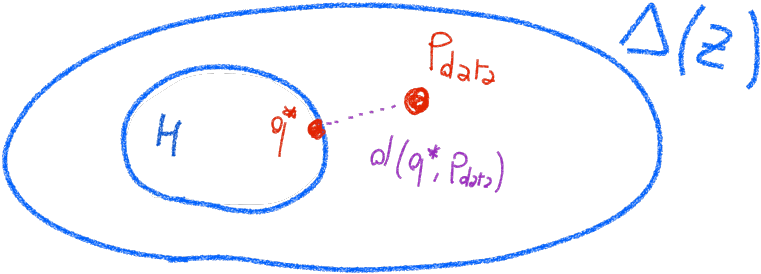 Δ(Z)
P_data
H
q*
d(q*, P_data)